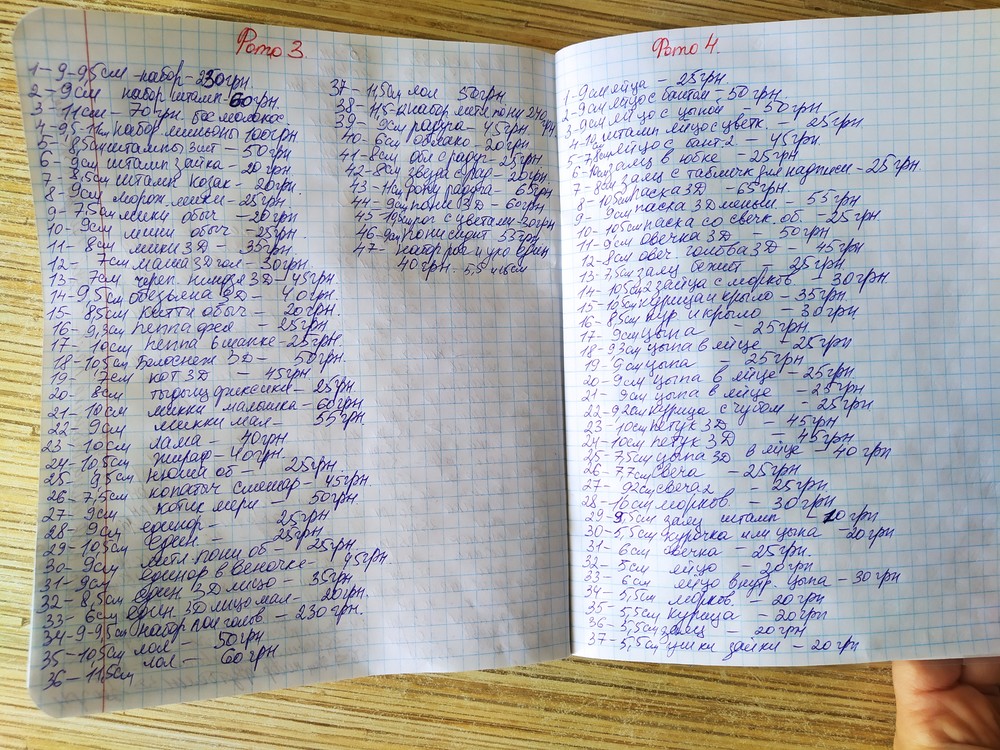 Фото 3.
1 - 9-9,5см - набор - 230грн.
2 - 9см набор штамп - 60грн.
3 - 11см - 70грн. босмолокос
4 - 9,5-11см набор миньоны 100грн
5 - 8,5см штампы 3шт - 50грн
6 - 9см штамп зайка - 20грн
7 - 8,5см штамп козак - 20грн.
8 - 9см морож. мики - 25грн.
9 - 7,5см мики обыч - 20грн
10 - 9см мини обыч - 25грн.
11 - 8см мики 3D - 35грн
12 - 7см маша 3D гол - 30грн.
13 - 7см череп. ниндзя 3D - 45грн
14 - 9,5см обезьяна 3D - 40грн.
15 - 8,5см китти обыч - 20грн.
16 - 9,3см пеппа фея - 25грн
17 - 10см пеппа в шапке - 25грн.
18 - 10,5см Белоснеж 3D - 50грн.
19 - 7см кот 3D - 45грн.
20 - 8см тыдыщ фиксики - 25грн
21 - 10см микки малышка - 60грн
22 - 9см микки мал - 55грн.
23 - 10см лама - 40грн
24 - 10,5см жираф - 40грн.
25 - 9,5см нюша об - 25грн.
26 - 7,5см копатыч смешар - 45грн
27 - 9см котик мери - 50грн
28 - 9см единор - 25грн
29 - 10,5см един. - 25грн
30 - 9см литл. пони об - 25грн
31 - 9см единор в веночке - 45грн
32 - 8,5см един 3D лицо - 35грн
33 - 6см един 3D лицо мал - 20грн.
34 - 9-9,5см набор пони голов - 230грн.
35 - 10,5см лол - 50грн
36 - 11,5см лол - 60грн
37 - 11,5см лол 50грн.
38 - 11,5-8 набор литл пони 240грн
39 - 9см радуга - 45грн.
40 - 6см облако - 20грн.
41 - 8см обл с радуг - 25грн
42 - 8см звезда с рад - 20грн
43 - 11см фону радуга - 65грн
44 - 9см пони 3D - 60грн
45 - рог с цветами - 30грн
46 - 9см пони сидит 55грн
47 - набор рог и ухо един
40грн. 5,5 и 8см
Фото 4.
1 - 9см яйца - 25грн.
2 - 9см яйцо с бантом - 50грн.
3 - 9см яйцо с цыпой - 50грн
4 - штамп яйцо с цветк. - 25грн
5 - 7,8см яйцо с бант 2 - 45грн.
6 - 10см заяц в юбке - 25грн
7 - 8см заяц с табличк для надписи - 25грн
8 - 10,5см паска 3D - 65грн.
9 - 9см паска 3D меньш - 55грн
10 - 10,5см паска со свечк. об. - 25грн
11 - 9см овечка 3D - 50грн
12 - 8см овеч голова 3D - 45грн
13 - 7,5см заяц бежит - 25грн
14 - 10,5см 2 зайца с морков. - 30грн
15 - 10,5см курица и крыло - 35грн.
16 - 8,5см кур и крыло - 30грн
17 - 9см цыпа - 25грн
18 - 9,3см цыпа в яйце - 25грн
19 - 9см цыпа - 25грн
20 - 9см цыпа в яйце - 25грн
21 - 9см цыпа в яйце - 25грн
22 - 9,2см курица с чубом - 25грн
23 - 10см петух 3D - 45грн
24 - 10см петух 3D - 45грн
25 - 7,5см цыпа 3D в яйце - 40грн
26 - 7,7см свеча - 25грн
27 - 9,2см свеча 2 - 25грн.
28 - 10см морков. - 30грн
29 - 9,5см заяц штамп 20грн
30 - 5,5см курочка или цыпа - 20грн
31 - 6см овечка - 25грн.
32 - 5см яйцо - 20грн
33 - 6см яйцо внутр. цыпа - 30грн
34 - 5,5см морков. - 20грн
35 - 5,5см курица - 20грн
36 - 5,5см заяц - 20грн
37 - 5,5см ушки зайки - 20грн